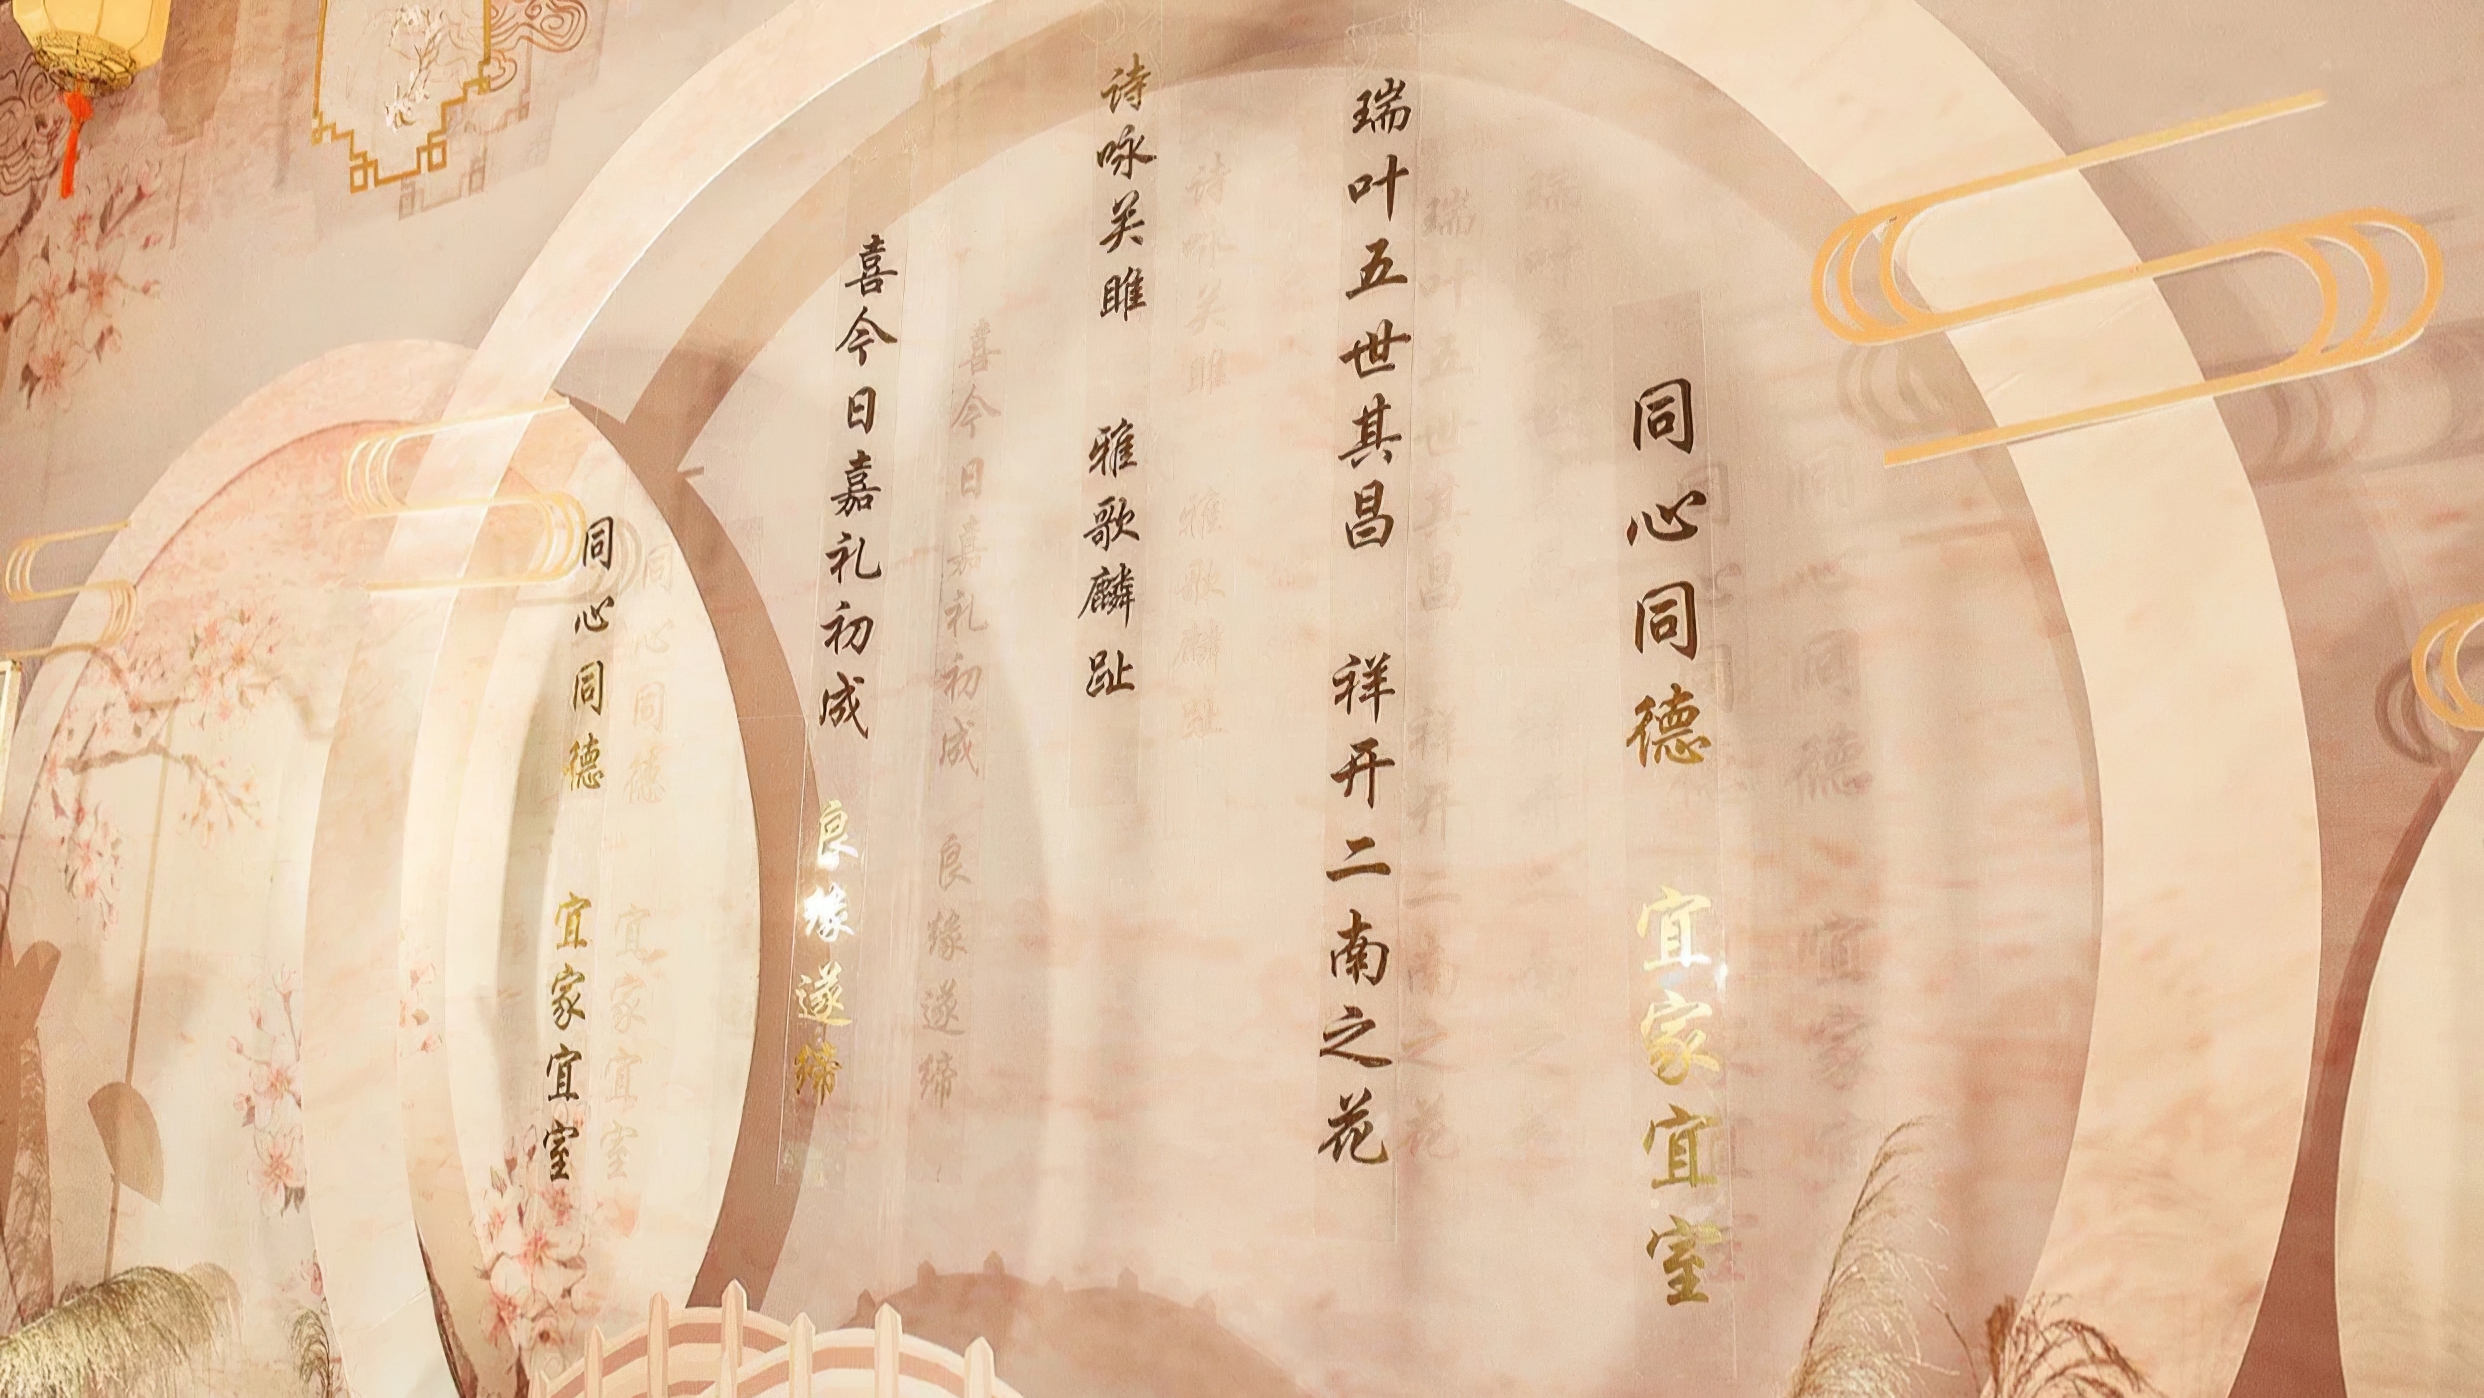 同心同德 宜家宜室
瑞叶五世其昌 祥开二南之花
诗咏关雎 雅歌麟趾
喜今日嘉礼初成 良缘遂缔
同心同德 宜家宜室